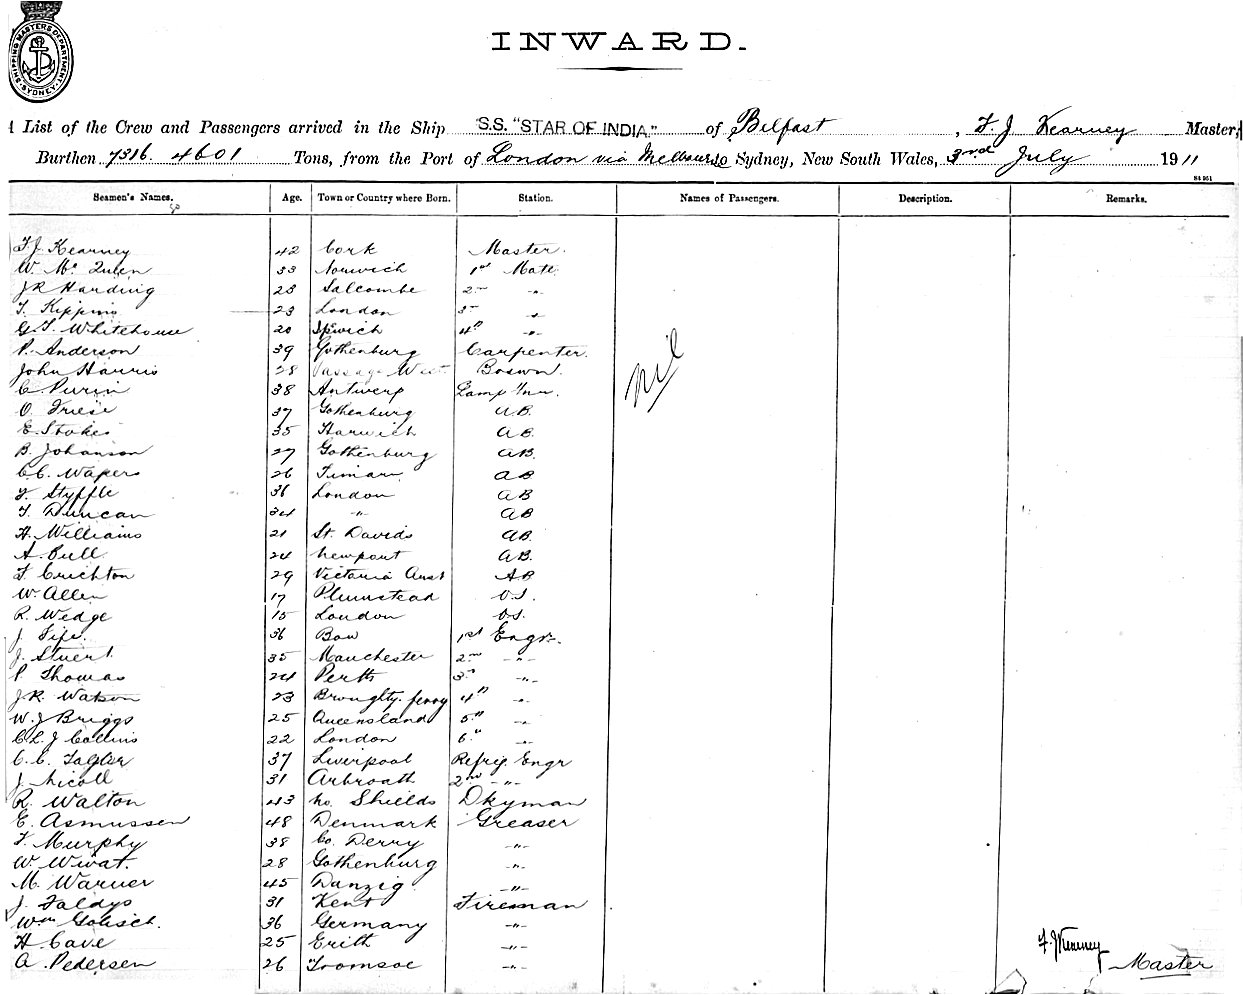 SHIPPING MASTERS DEPARTMENT SYDNEY
INWARD.
List of the Crew and Passengers arrived in the Ship S.S. "STAR OF INDIA." of Belfast, F. J. Kearney Master,
Burthen 7316. 4601 Tons, from the Port of London via Melbourne Sydney, New South Wales, 3rd July 1911
Seamen's Names. Age. Town or Country where Born. Station. Names of Passengers. Description. Remarks.
F.J. Kearney 42 Cork Master.
W. Mc Queen 33 Norwich 1st Mate
J R Harding 23 Salcombe 2nd "
T. Kipping 23 London 3rd "
G. T. Whitehouse 20 Ipswich 4th "
P. Anderson 39 Gothenburg Carpenter.
John Harris 28 Passage West Boswn.
C. Purin 38 Antwerp Lamp
nil
O. Friese 37 Gothenburg A.B.
E. Stokes 35 Harwich A.B.
B. Johanson 27 Gothenburg A.B.
C.C. Wapers 26 Timaru AB
F. Styffle 36 London AB
T. Duncan 34 " AB
H. Williams 21 St. Davids AB.
A. Bull 24 Newport A.B.
T. Crichton 29 Victoria Aust AB
W. Allen 17 Plumstead O.S.
R. Wedge 15 London O.S.
J. Fife. 36 Bow 1st Engr.
J. Stuert 35 Manchester 2nd "
P. Thomas 24 Perth 3rd "
J.R. Watson 23 Broughty. ferry 4th "
W. J Briggs 25 Queensland 5th "
C L J Collins 22 London 6th "
C. C. 37 Liverpool Refrig. Engr
J. Nicoll 31 Arbroath 2nd "
R. Walton 43 No. Shields Dkyman
E. Asmussen 48 Denmark Greaser
T. Murphy 38 Co. Derry "
W. Wivat. 28 Gothenburg "
M. Warner 45 Danzig "
J. Faldys 31 Kent Fireman
Wm 36 Germany "
H Cave 25 Erith "
A. Pedersen 26 Tromsoe "
F. J Kearney
Master